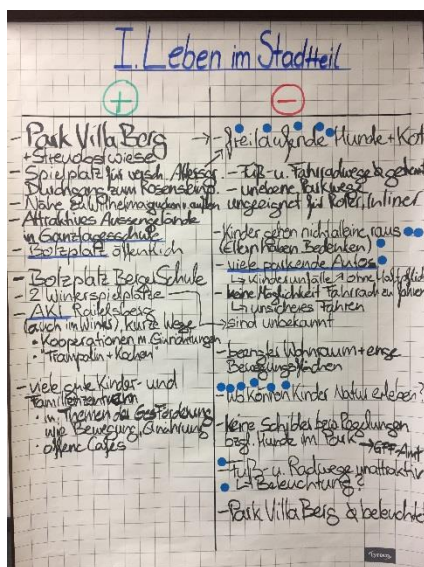 I. Leben im Stadtteil
+
- Park Villa Berg
+ Streuobstwiese
- Spielplatz für versch. Altersgr.
Durchgang zum Rosenstein
- Nähe zu Wilhelma gucken v. außen
- Attraktives Aussengelände
in Ganztagesschule
Bolzplatz öffentlich
- Bolzplatz Berger Schule
- 2 Winterspielplätze
- AKI Raitelsberg
(auch im Winter), kurze Wege
• Kooperationen m. Einrichtungen
• Trampolin + Kochen
- viele gute Kinder- und
Familienzentren
in Themen der Ges.förderung
wie Bewegung, Ernährung
• offene Cafés
-
- freilaufende Hunde + Kot
- Fuß- u. Fahrradwege
- unebene Parkwege
ungeeignet für Roller, Inliner
- Kinder gehen nicht alleine raus
(Eltern haben Bedenken)
- viele parkende Autos
↳ Kinderunfälle
- keine Möglichkeit Fahrrad zu fahren
↳ unsicheres Fahren
→ sind unbekannt
- beengter Wohnraum + enge
Bewegungsflächen
- wo können Kinder Natur erleben?
- keine Schilder bzw. Regelungen
bzgl. Hunde im Park
- Fuß- u. Radwege unattraktiv
↳ Beleuchtung?
- Park Villa Berg